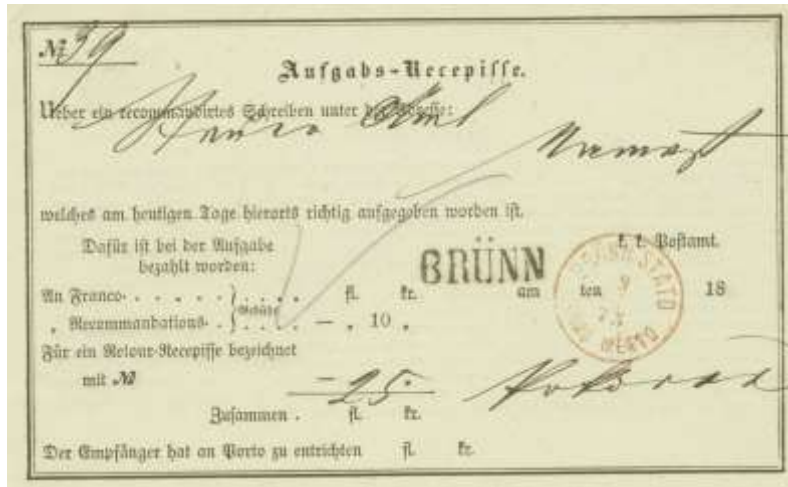 № 39
Aufgabs-Recepisse.
Ueber ein recommandirtes Schreiben unter der Adresse:
welches am heutigen Tage hierorts richtig aufgegeben worden ist.
Dafür ist bei der Aufgabe
bezahlt worden:
k. k. Postamt.
BRÜNN
am ten 18
BRÜNN STADT
9
MĚSTO
An Franco- . . . . . } Gebühr . . . . fl. kr.
„ Recommandations- . } . . . . — „ 10 „
Für ein Retour-Recepisse bezeichnet
mit №
— 25
Zusammen . fl. kr.
Der Empfänger hat an Porto zu entrichten fl. kr.